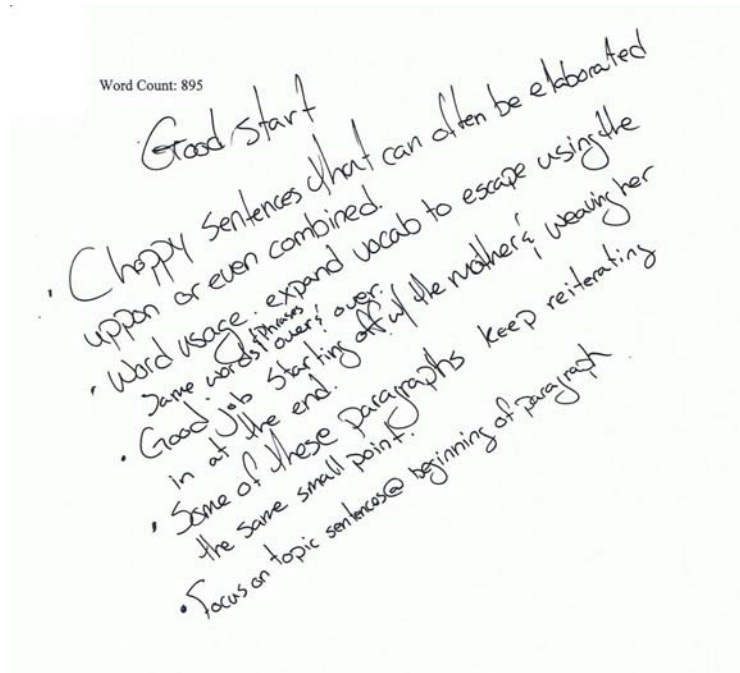 Word Count: 895
Good start
• Choppy sentences that can often be elaborated
uppon or even combined.
• Word usage. expand vocab to escape using the
same words & phrases over & over.
• Good job starting off w/ the mother & weaving her
in at the end.
• Some of these paragraphs keep reiterating
the same small point.
• Focus on topic sentences @ beginning of paragraph